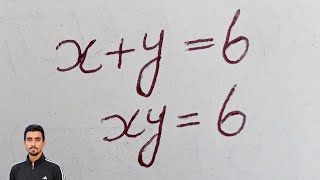 x+y=6
xy=6